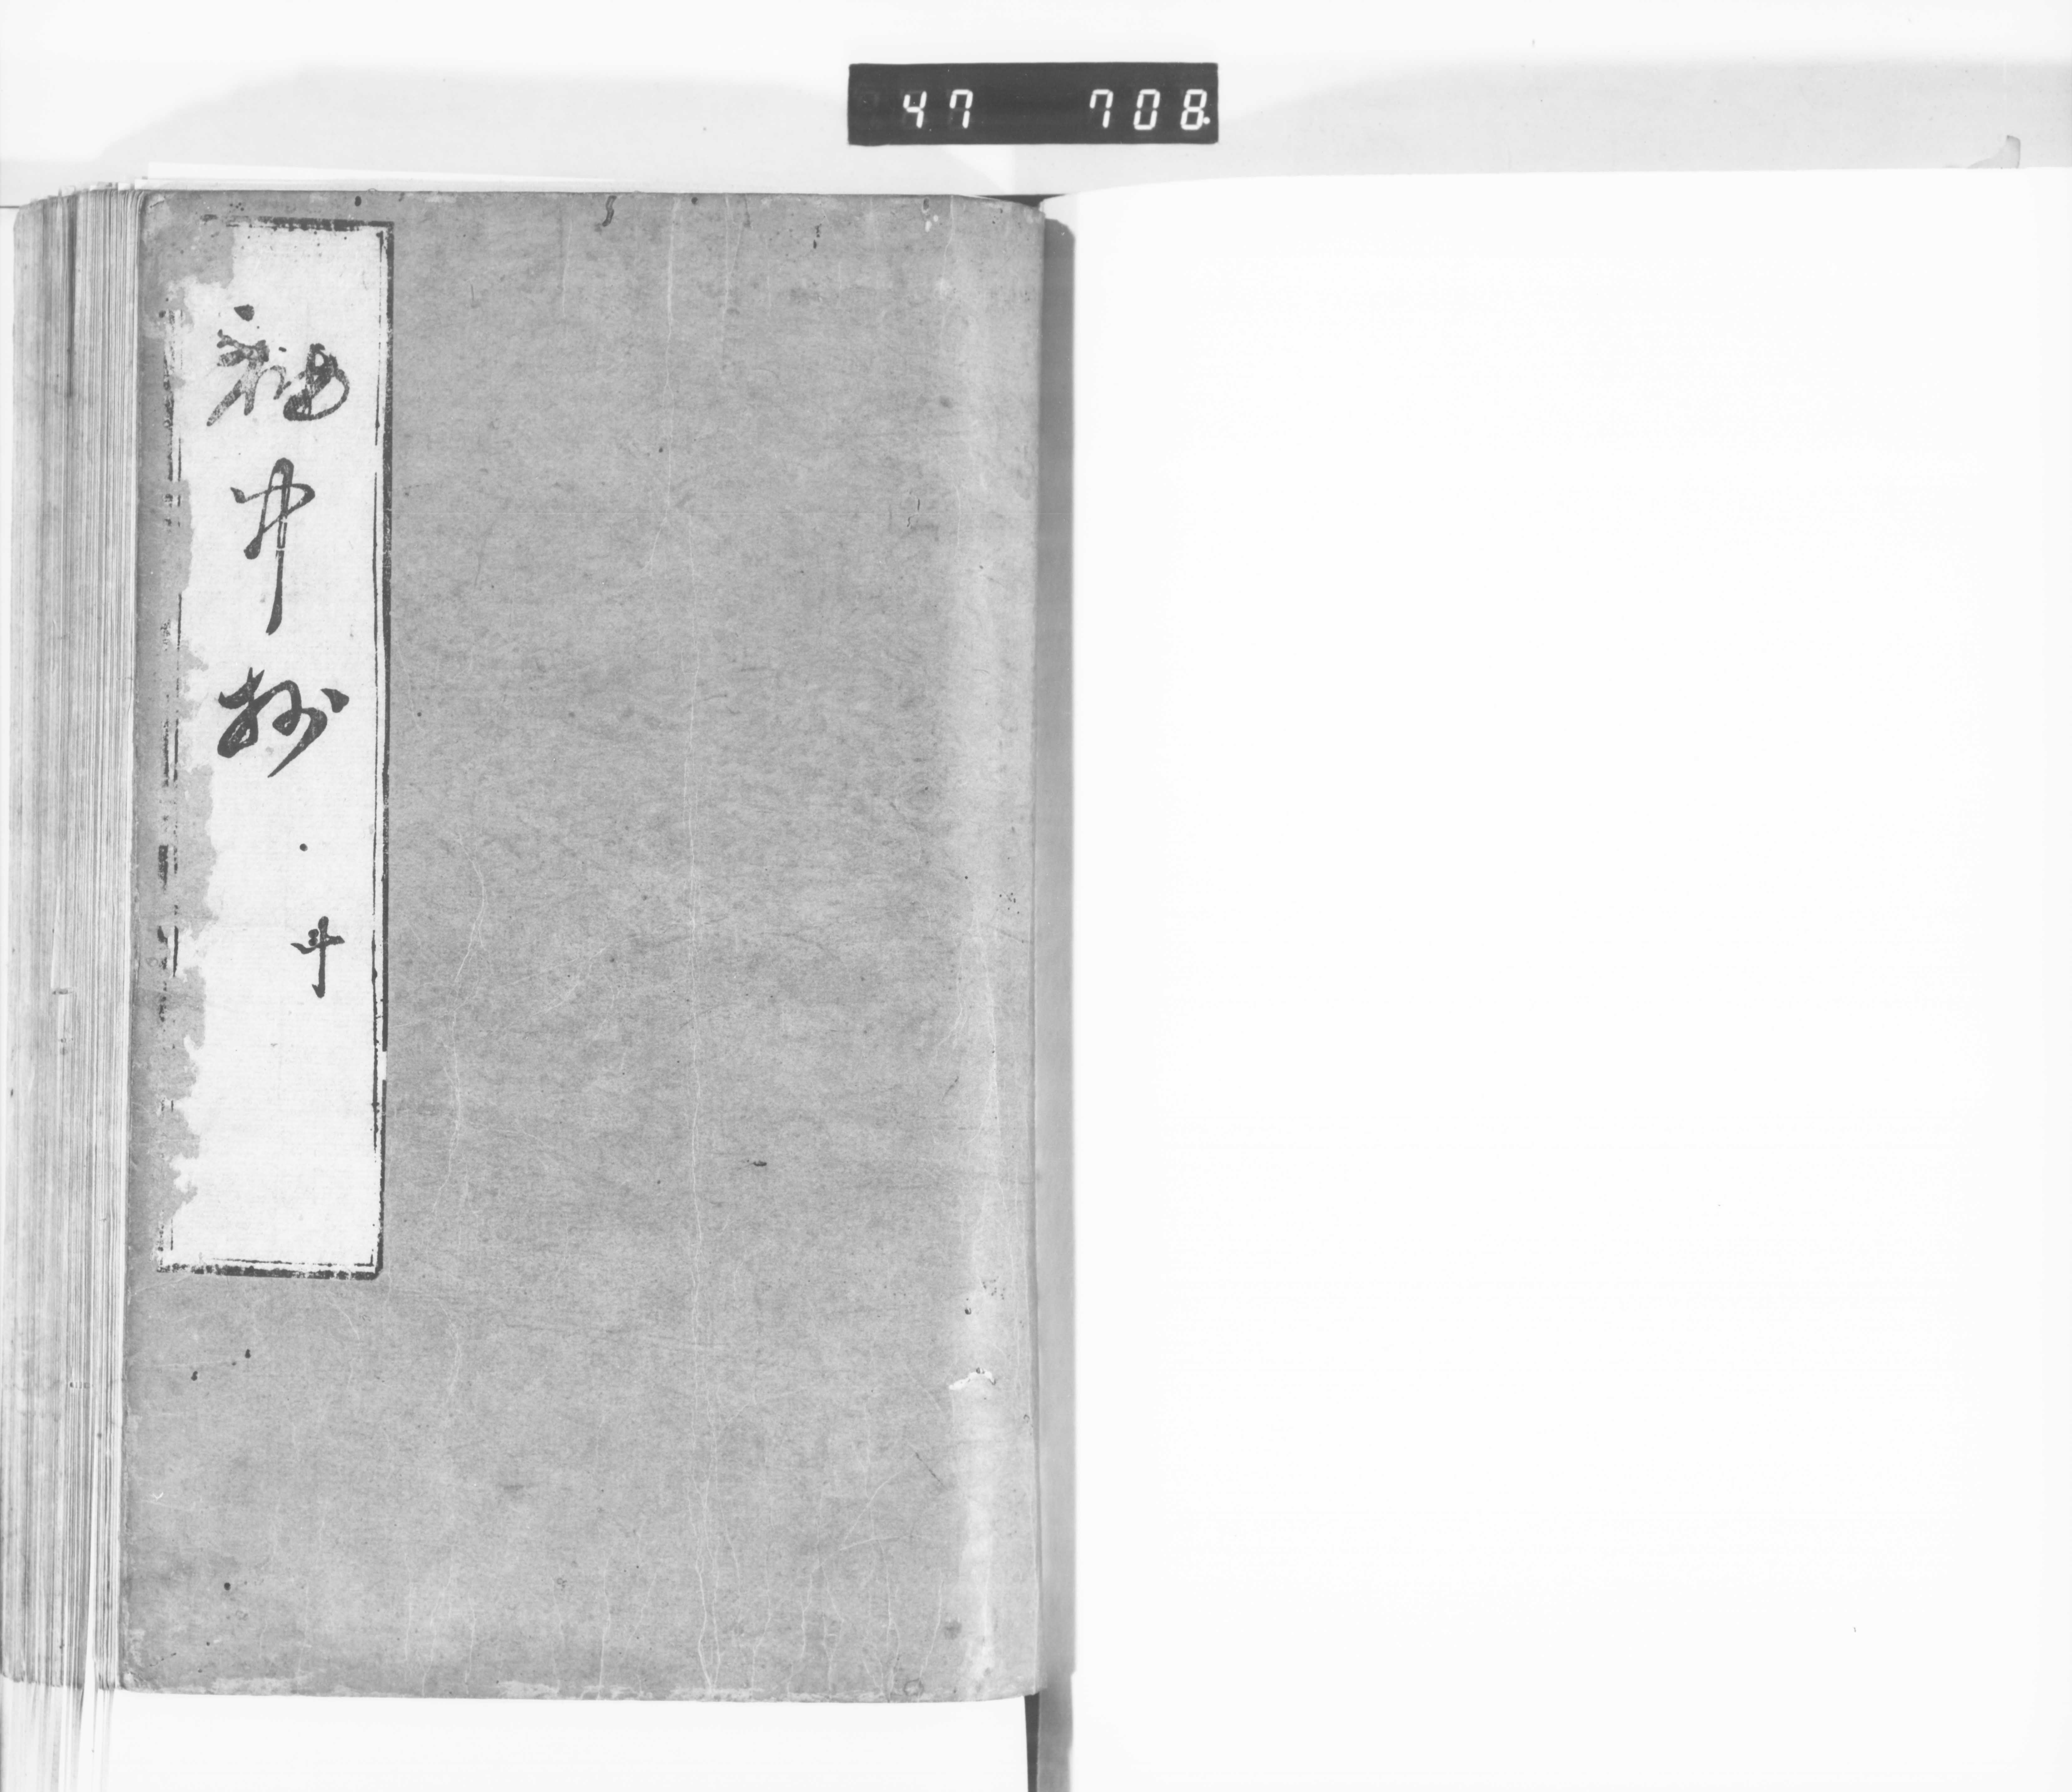 47 708
袖中抄 廿